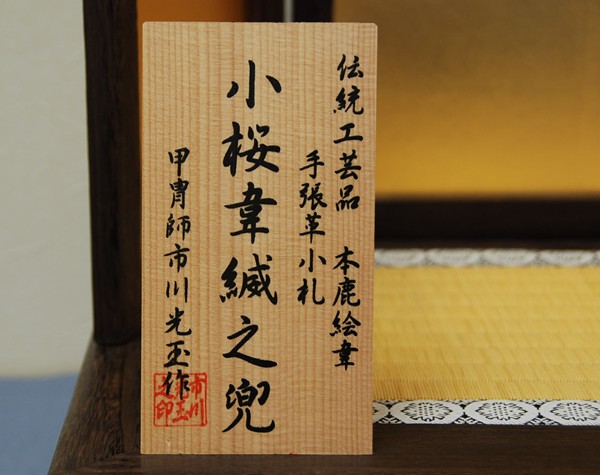 伝統工芸品 本鹿絵韋
手張革小札
小桜韋縅之兜
甲冑師市川光玉作
市川
玉
之印